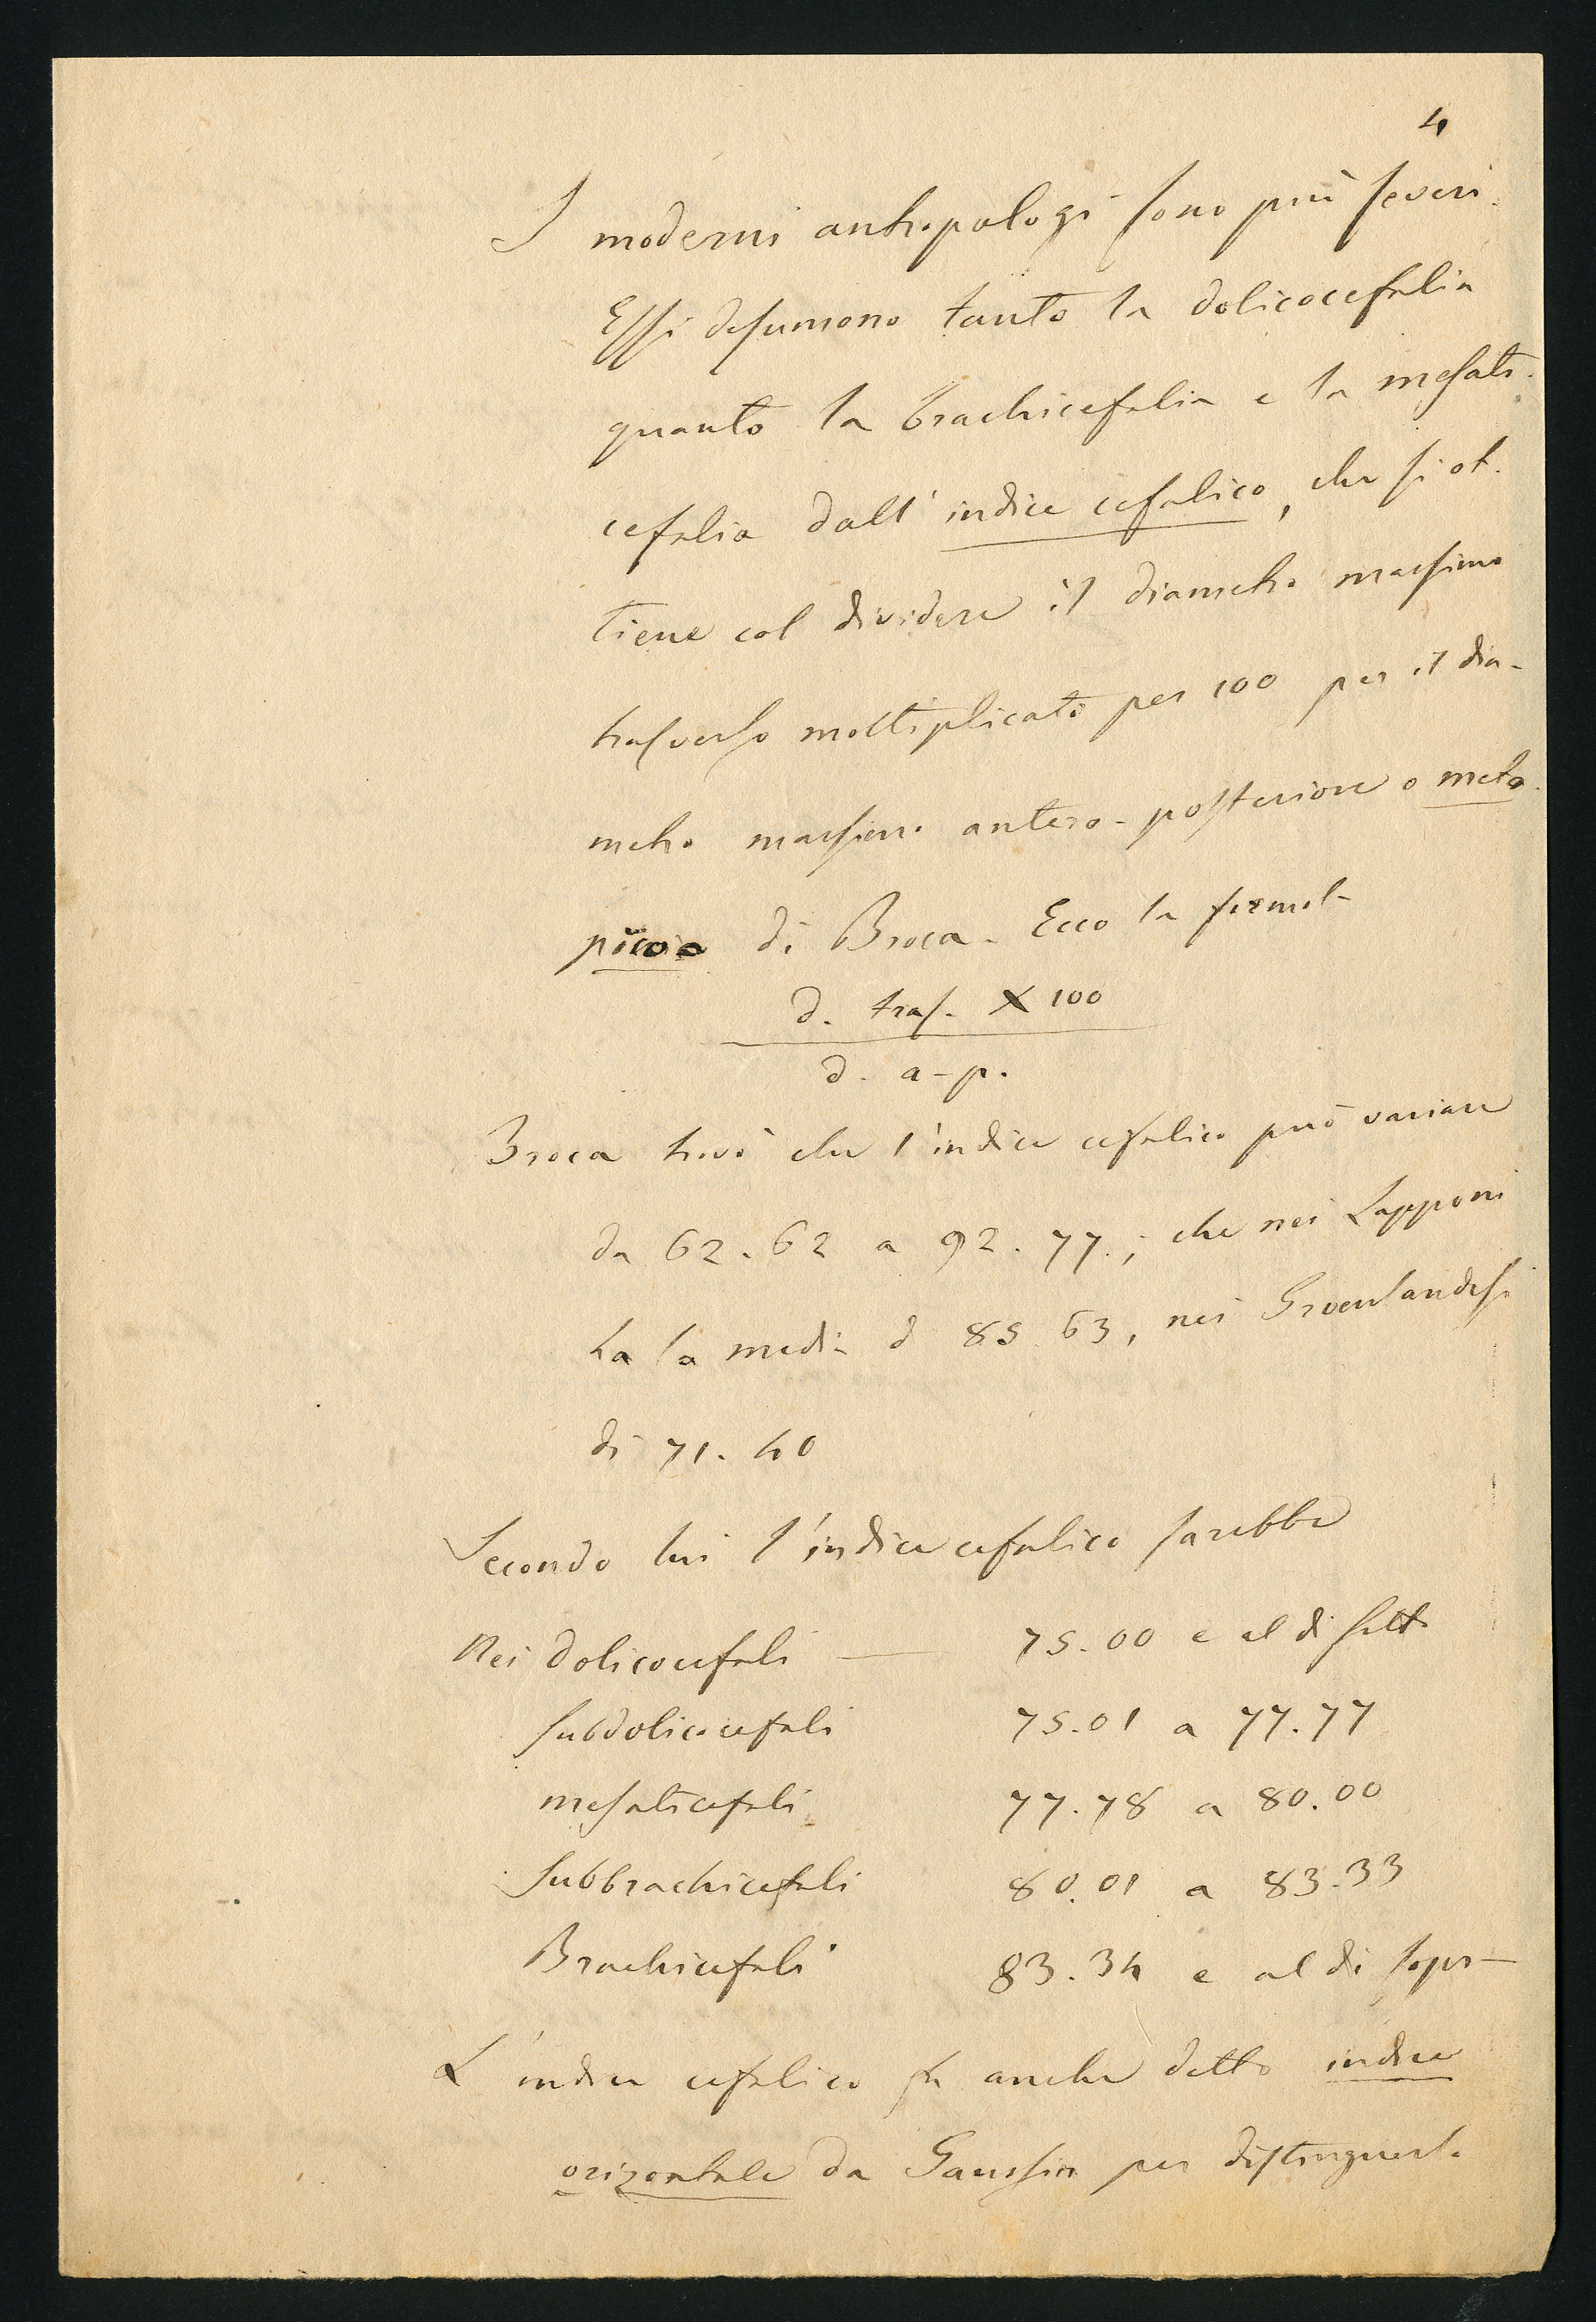 4
I moderni antropologi sono più severi.
Essi desumono tanto la dolicocefalia
quanto la brachicefalia e la mesati-
cefalia dall'indice cefalico, che si ot-
tiene col dividere il diametro massimo
trasverso moltiplicato per 100 per il dia-
metro massimo antero-posteriore o meto-
pico di Broca. Ecco la formola
d. tras. X 100
d. a-p.
Broca trovò che l'indice cefalico può variare
da 62.62 a 92.77; che nei Lapponi
ha la media d 85.63, nei Groenlandesi
di 71.40
Secondo lui l'indice cefalico sarebbe
Nei dolicocefali — 75.00 e al di sotto
subdolicocefali 75.01 a 77.77
mesaticefali 77.78 a 80.00
subbrachicefali 80.01 a 83.33
Brachicefali 83.34 e al di sopra
L'indice cefalico fu anche detto indice
orizontale da Gaussin per distinguerlo